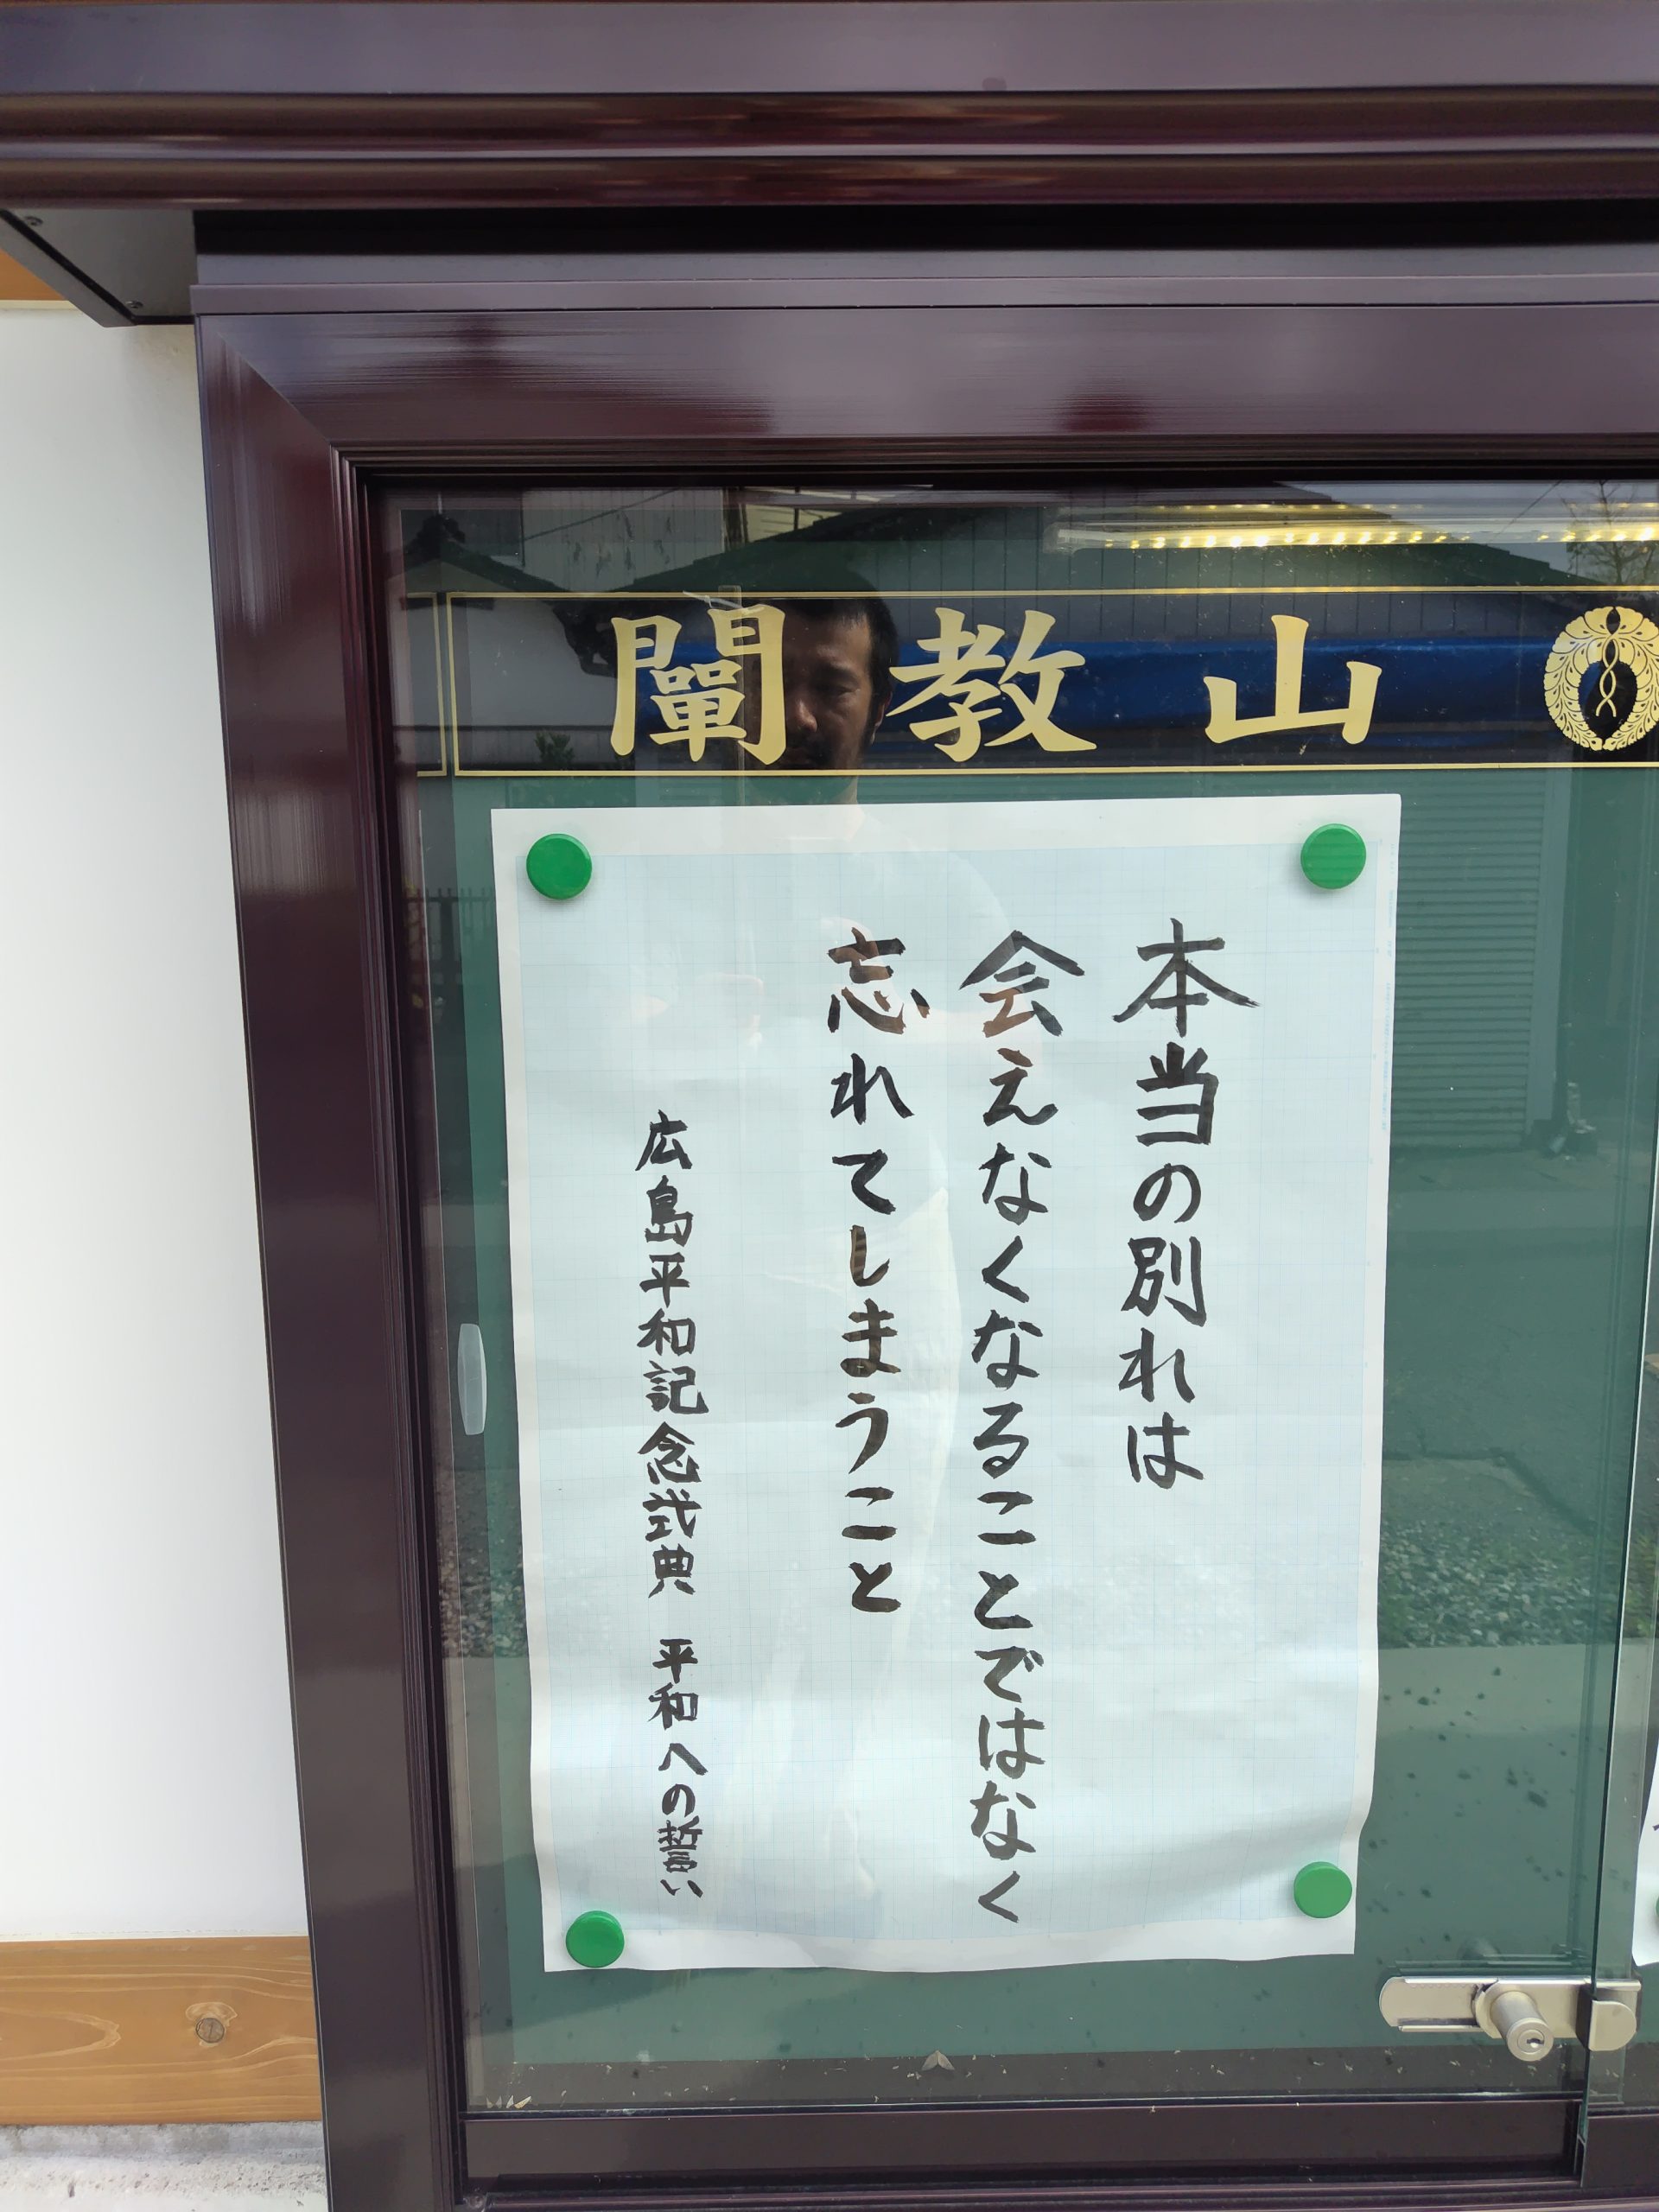 闡教山
本当の別れは
会えなくなることではなく
忘れてしまうこと
広島平和記念式典　平和への誓い